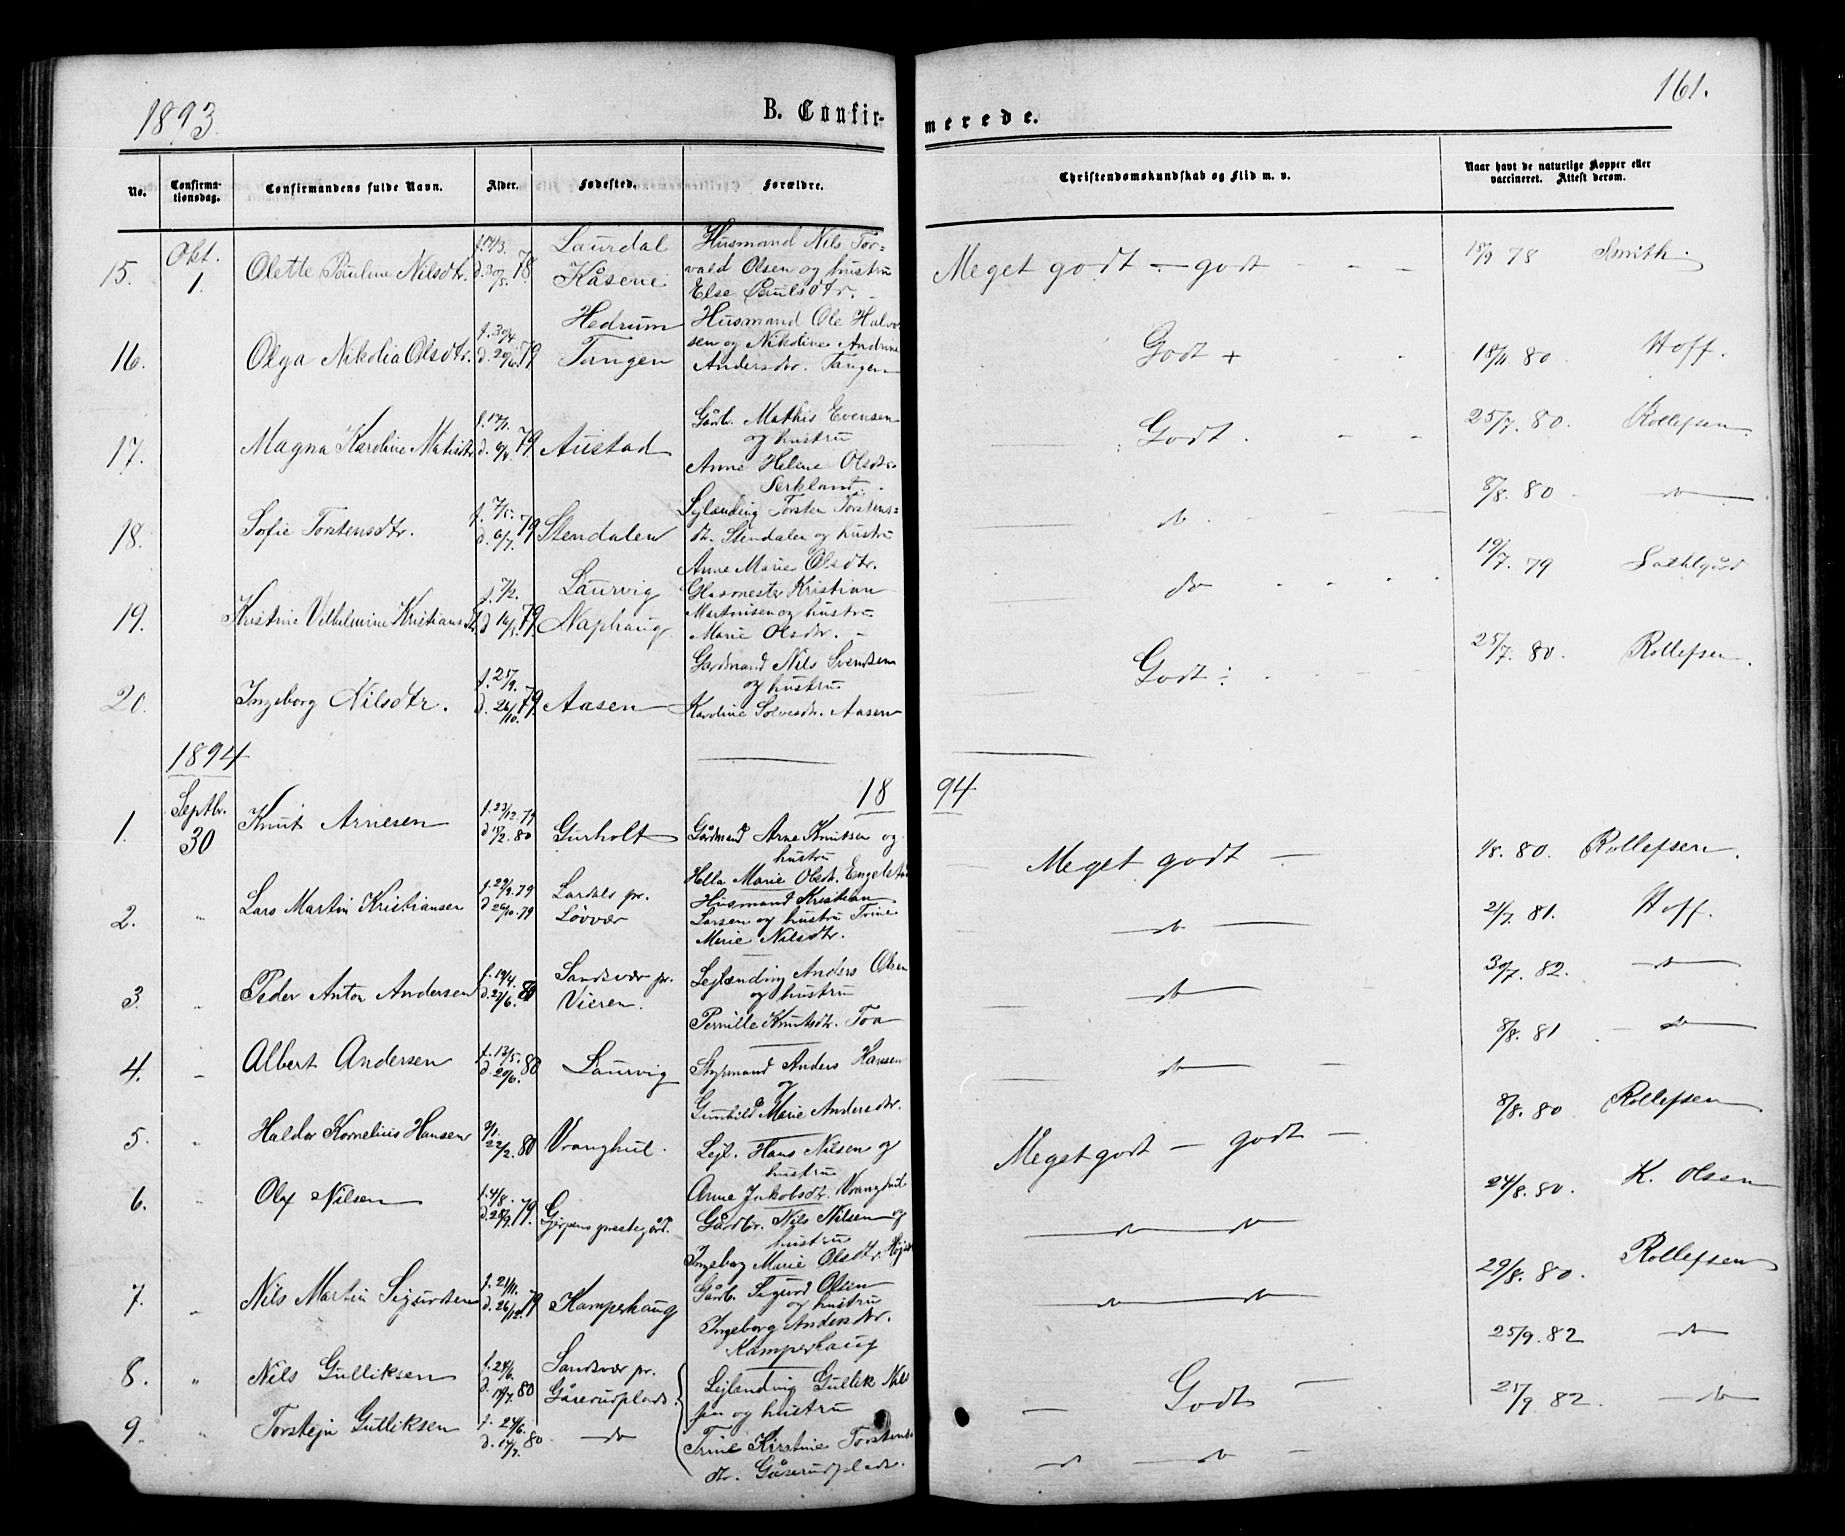 1893.
B. Confir-
merede.
161.
No.
Confirma-
tionsdag.
Confirmandens fulde Navn.
Alder.
Fødested.
Forældre.
Christendomskundskab og Flid m. v.
Naar havt de naturlige Kopper eller
vaccineret. Attest derom.
15. Okt. 1. Olette Pauline Nilsdtr. 78 Laurdal
Kåsene
Husmand Nils Tor-
vald Olsen og hustru
Else Paulsdtr.
Meget godt - godt - - - 78 Smith.
16. Olga Nikolia Olsdtr. f. 30/4 79 Hedrum
Tangen
Husmand Ole Halvor-
sen og Nikoline Andrine
Andersdtr. Tangen
Godt + 80. Hoff.
17. Magna Karoline Matisdtr 79 Austad
Gårdb. Mathis Evensen
og hustru
Anne Helene Olsdtr.
Serkland.
Godt. - - 25/7. 80. Rollefsen.
18. Sofie Torstensdtr. f. 7/5. d. 6/7. 79 Stendalen
Lejlænding Torsten Torstens=
Stendalen og hustru
Anne Marie Olsdtr.
do 8/8. 80 do
19. Kristine Vilhelmine Kristiansdtr. f. 7/2. 79 Laurvig
Naphaug
Glasmester Kristian
Martinsen og hustru
Marie Olsdtr.
do 19/7. 79
20. Ingeborg Nilsdtr. f. 25/9. d. 26/10. 79. Aasen
Gardmand Nils Svendsen
og hustru
Karoline Solvesdtr. Aasen
Godt ÷ 25/7. 80. Rollefsen.
1894
18 94
1. Septbr. 30 Knut Arnesen f. 23/12. 79 80 Gurholt
Gårdmand Arne Knutsen og
hustru
Hella Marie Olsdt.
Meget godt - 1/8. 80. Rollefsen.
2. " Lars Martin Kristiansen f. 29/9. 79 d. 26/10. 79 Lardals pr.
Løvvær
Husmand Kristian
Larsen og hustru Trine
Marie Nilsdtr.
do 21/7. 81. Hoff.
3. " Peder Anton Andersen f. 19/4. d. 27/6. 80 Sandsvær pr.
Vieren.
Lejlænding Anders Olsen
og hustru
Pernille Knutsdtr. Toa
do 30/7. 82. do
4. - Albert Andersen f. 12/5. d. 20/6. 80 Laurvig
Styrmand Anders Hansen
og
Gunhild Marie Andersdtr.
do 8/8. 81 - do
5. " Haldor Kornelius Hansen 9/1. 22/2. 80 Vranghul.
Lejl. Hans Nilsen og
hustru
Anne Jakobsdtr. Vranghul
Meget godt - godt - 8/8. 80. Rollefsen
6. " Olaf Nilsen f. 4/8. d. 28/9. 79. Gjerpens prestegård.
Gårdbr. Nils Nilsen og
hustru
Ingeborg Marie Olsdtr.
do do 24/8. 80. K. Olsen
7. " Nils Martin Sigurdsen f. 21/11. d. 26/12. 79 Kamperhaug
Gårdb. Sigurd Olsen
og hustru
Ingeborg Andersdtr.
Kamperhaug
do do 29/8. 80. Rollefsen
8. " Nils Gulliksen f. 24/6. 80 Sandsvær pr.
Gåserudplads.
Lejlænding Gullik Nils
sen og hustru
Godt - 25/9. 82 do
9. " Torstejn Gulliksen f. 24/6. d. 14/7. 80 do
Trine Kirstine Torstens
dtr. Gåserudplads.
do do - 25/9. 82. do